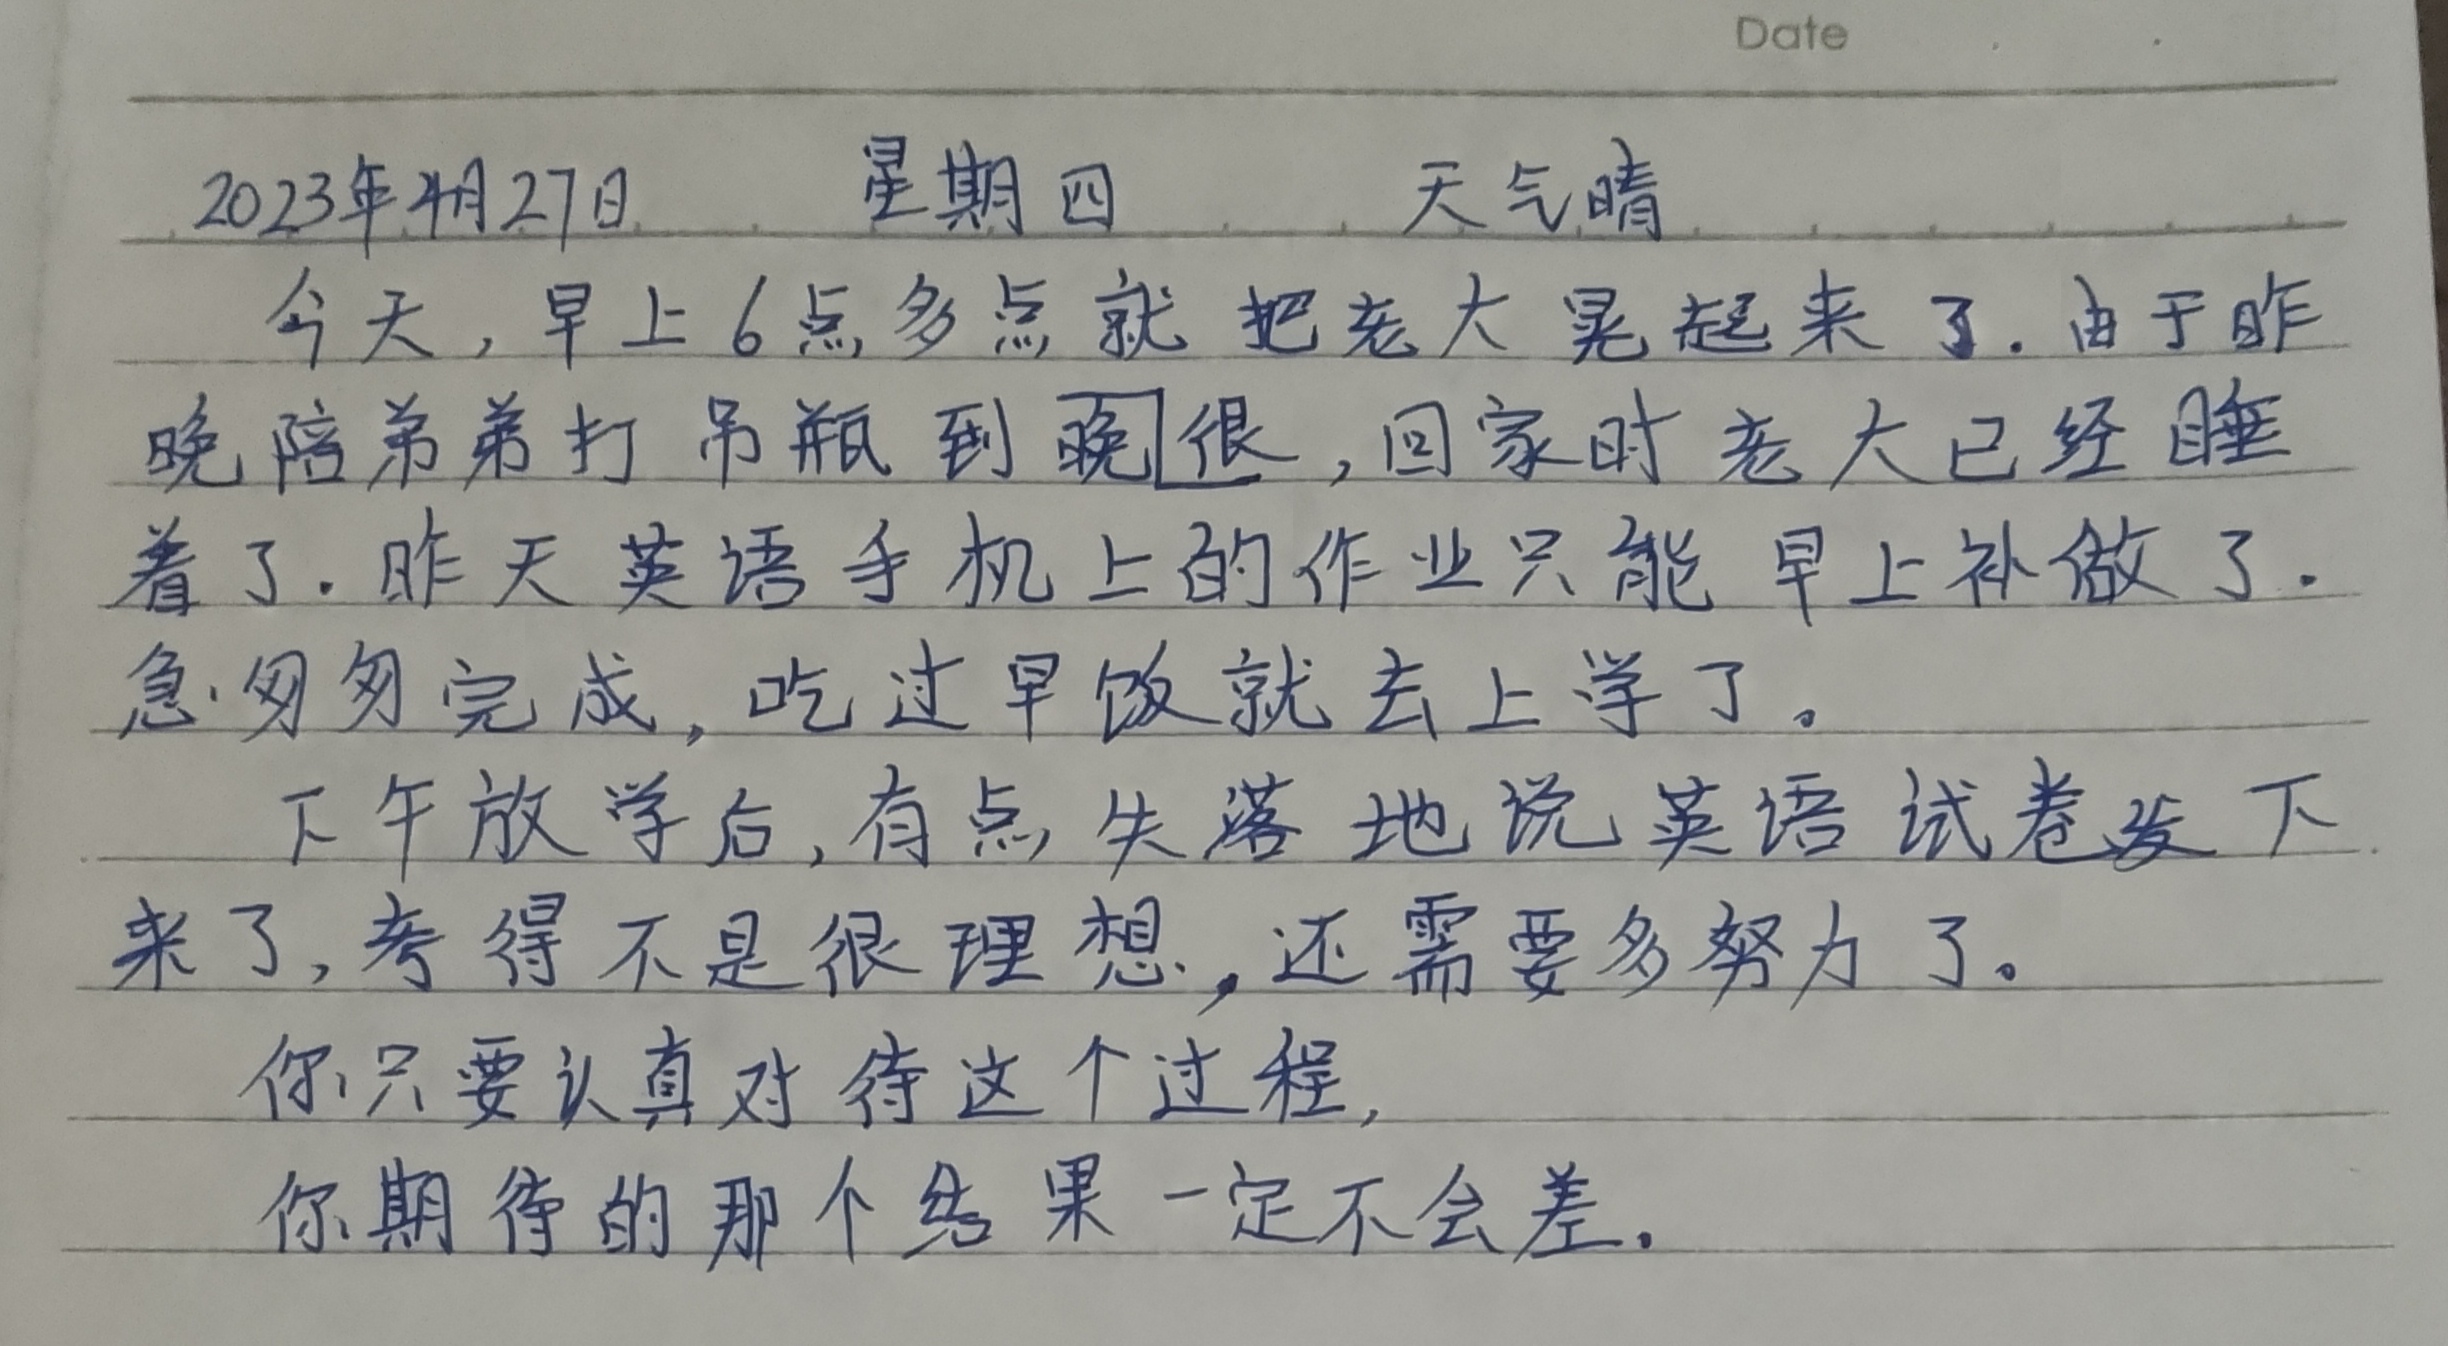 Date
2023年4月27日 星期四 天气晴
今天,早上6点多点就把老大晃起来了.由于昨
晚陪弟弟打吊瓶到晚很,回家时老大已经睡
着了.昨天英语手机上的作业只能早上补做了.
急匆匆完成,吃过早饭就去上学了。
下午放学后,有点失落地说英语试卷发下
来了,考得不是很理想,还需要多努力了。
你只要认真对待这个过程,
你期待的那个结果一定不会差.